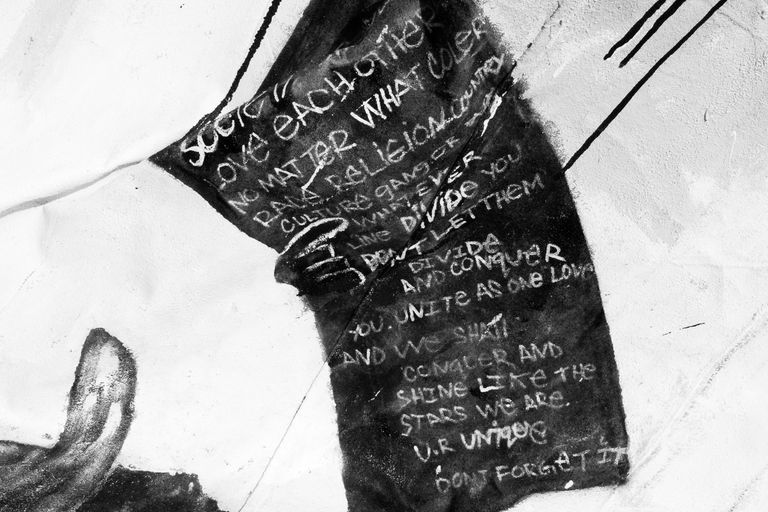 SOCIETY
LOVE EACH OTHER
NO MATTER WHAT COLER
RACE RELIGION COUNTRY
CULTURE GANG OR
WHATEVER
LINE DIVIDE YOU
DON'T LET THEM
DIVIDE
AND CONQUER
YOU. UNITE AS ONE LOVE
AND WE SHALL
CONQUER AND
SHINE LIKE THE
STARS WE ARE.
U.R UNIQUE
DONT FORGET IT